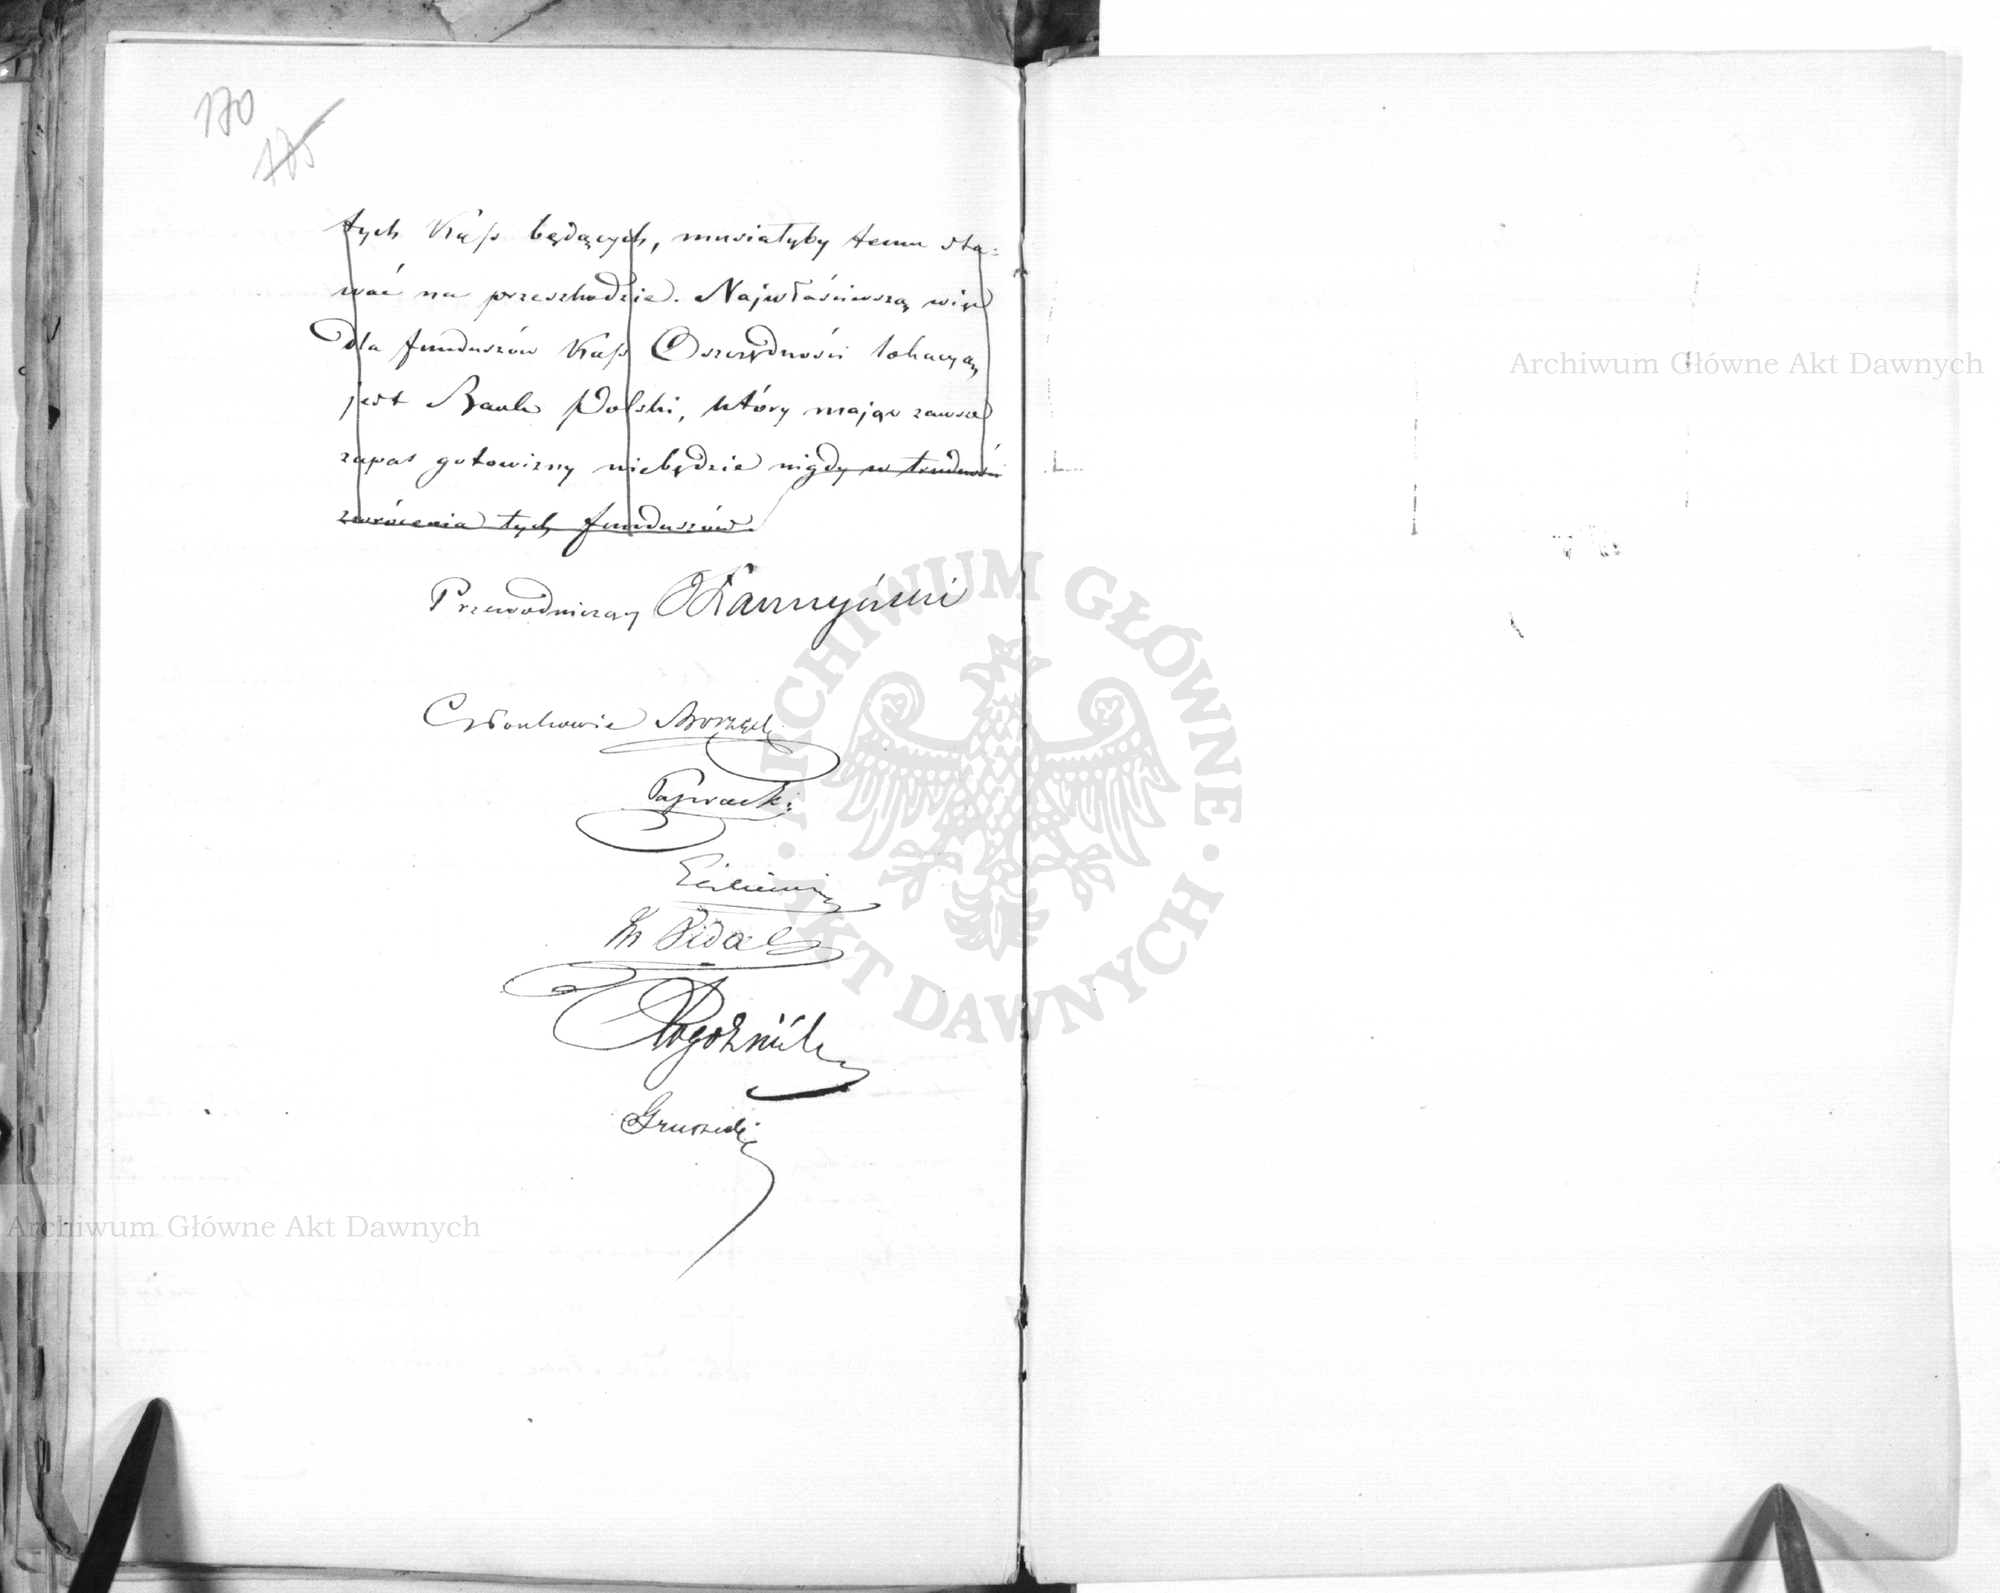 170
175
tych Kass będących, musiałyby temu sta=
wać na przeszkodzie. Najwłaściwszą więc
dla funduszów Kass Oszczędności lokacyą
jest Bank Polski, który mając zawsze
zapas gotowizny niebędzie nigdy w trudności
zwrócenia tych funduszów.
Przewodniczący
Członkowie
Archiwum Główne Akt Dawnych
ARCHIWUM GŁÓWNE · AKT DAWNYCH ·
Archiwum Główne Akt Dawnych